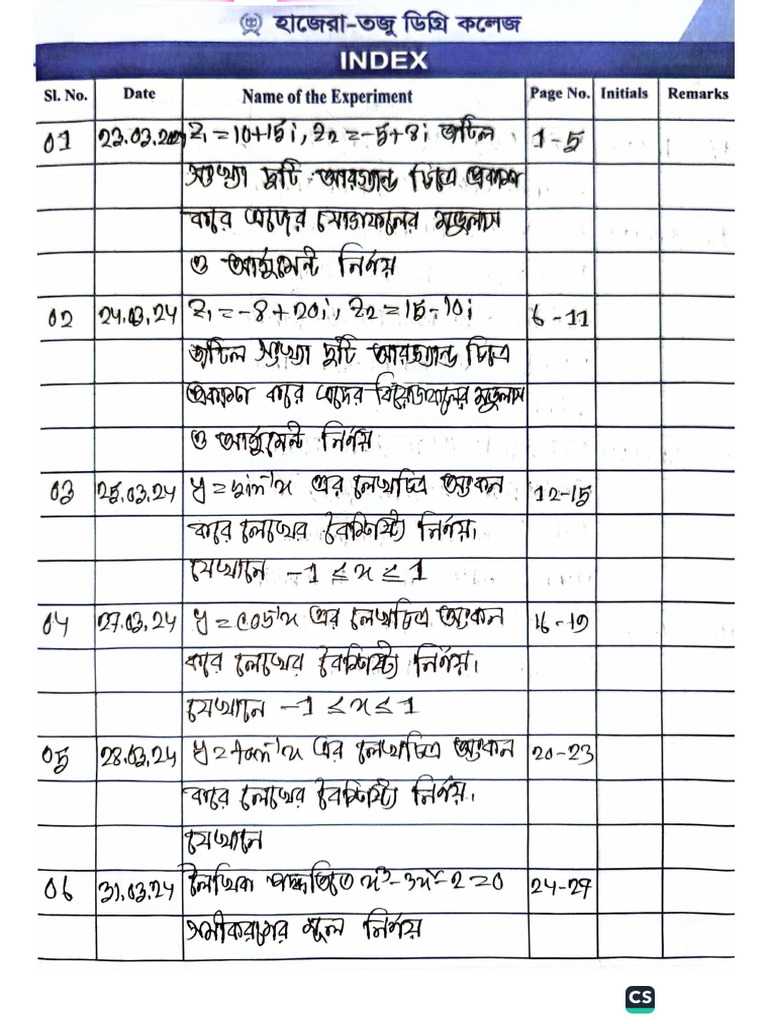 হাজেরা-তজু ডিগ্রি কলেজ
INDEX
Sl. No. Date Name of the Experiment Page No. Initials Remarks
01 23.03.2024 z₁ = 10+15i, z₂ = -5+8i জটিল 1-5
সংখ্যা দুটি আরগ্যান্ড চিত্রে প্রকাশ
করে এদের যোগফলের মডুলাস
ও আর্গুমেন্ট নির্ণয়
02 24.03.24 z₁ = -8+20i, z₂ = 15-10i 6-11
জটিল সংখ্যা দুটি আরগ্যান্ড চিত্রে
প্রকাশ করে এদের বিয়োগফলের মডুলাস
ও আর্গুমেন্ট নির্ণয়
03 25.03.24 y = sin⁻¹x এর লেখচিত্র অংকন 12-15
করে লেখের বৈশিষ্ট্য নির্ণয়।
যেখানে -1 ≤ x ≤ 1
04 27.03.24 y = cos⁻¹x এর লেখচিত্র অংকন 16-19
করে লেখের বৈশিষ্ট্য নির্ণয়।
যেখানে -1 ≤ x ≤ 1
05 28.03.24 y = tan⁻¹x এর লেখচিত্র অংকন 20-23
করে লেখের বৈশিষ্ট্য নির্ণয়।
যেখানে
06 31.03.24 লৈখিক পদ্ধতিতে x³-3x²-2=0 24-27
সমীকরণের মূল নির্ণয়
CS